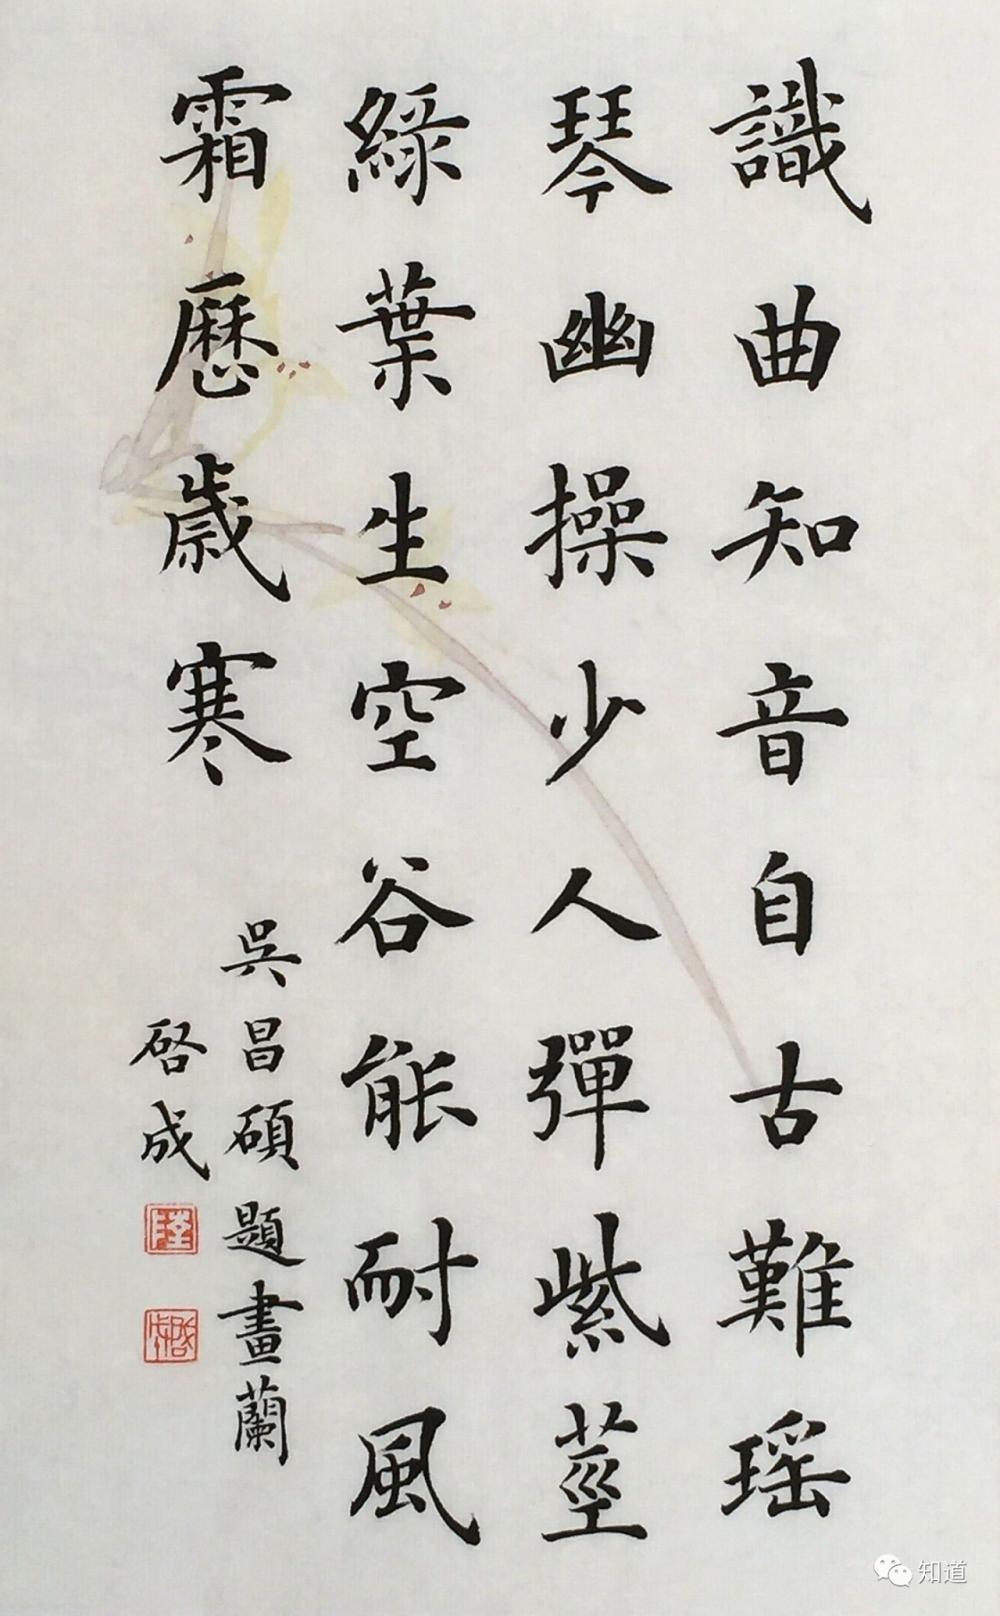 識曲知音自古難瑤
琴幽操少人彈紫莖
綠葉生空谷能耐風
霜歷歲寒
吳昌碩題畫蘭
啓成
陸
啓成
知道